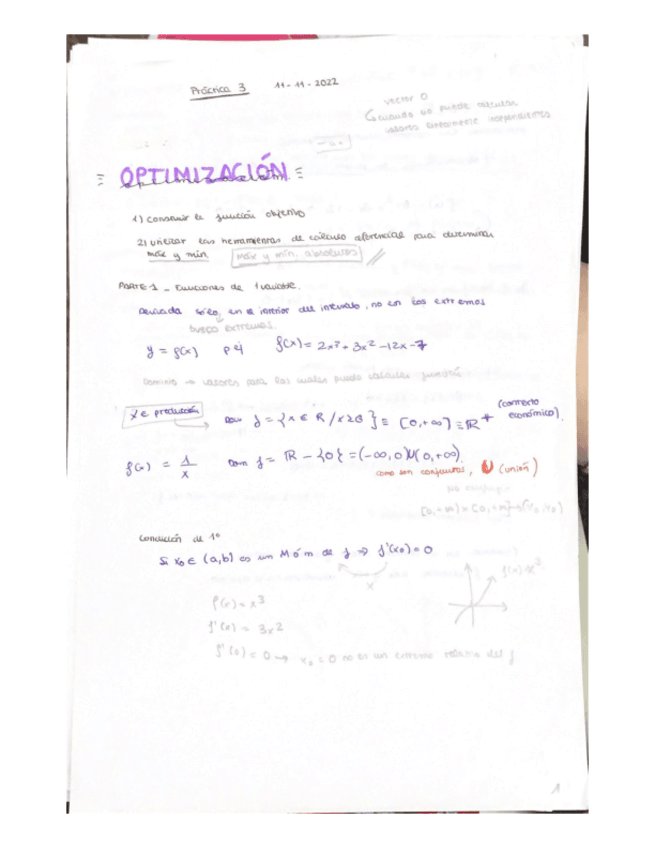 Práctica 3 11-11-2022
vector 0
cuando no puede calcular
valores linealmente independientes
= OPTIMIZACIÓN =
1) Construir la función objetivo
2) utilizar las herramientas de cálculo diferencial para determinar
máx y mín. máx y mín. absolutos
PARTE 1 - Funciones de 1 variable.
Derivada sólo, en el interior del intervalo, no en los extremos
busco extremos.
y = f(x) p ej f(x) = 2x³ + 3x² - 12x - 7
Dominio → valores para los cuales puedo calcular
x e producción Dom f = {x ∈ R / x≥0} ≡ [0,+∞) ≡ R⁺ (contexto
económico).
f(x) = 1/x Dom f = R - {0} = (-∞, 0) U (0, +∞)
como son conjuntos, U (unión)
No
[0,+∞) x [0,+∞)
Condición de 1º
Si x₀ ∈ (a,b) es un M ó m de f ⇒ f'(x₀) = 0
x
f(x) = x³
f(x) = x³
f'(x) = 3x²
f'(0) = 0 → x₀ = 0 no es un extremo relativo del f
1